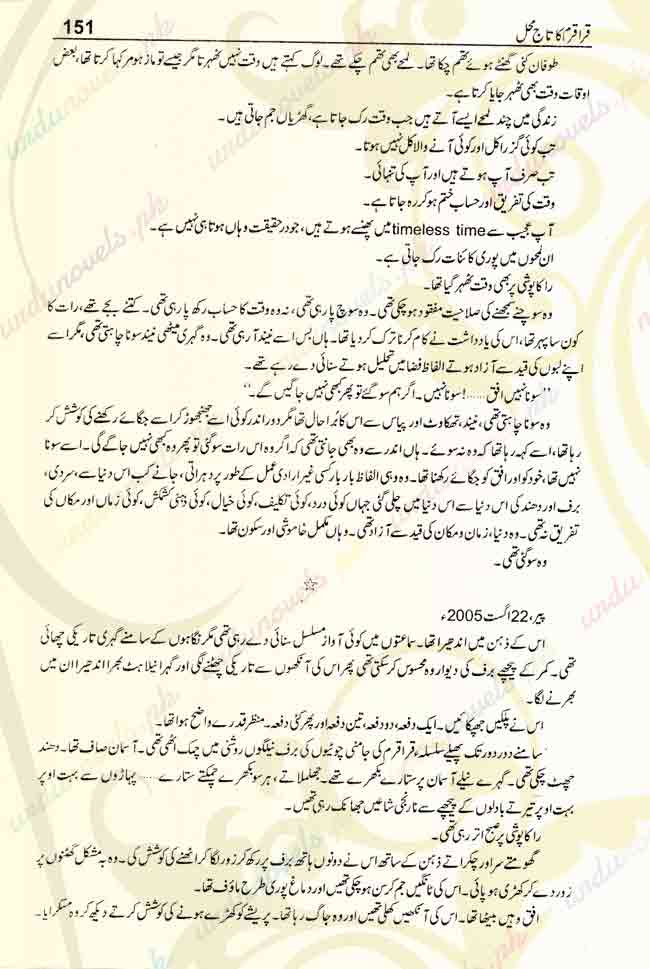 قراقرم کا تاج محل 151
طوفان کئی گھنٹے ہوئے تھم چکا تھا۔ لمحے بھی تھم چکے تھے۔ لوگ کہتے ہیں وقت نہیں ٹھہرتا مگر جیسے توماز ہومر کہا کرتا تھا، بعض
اوقات وقت بھی ٹھہر جایا کرتا ہے۔
زندگی میں چند لمحے ایسے آتے ہیں جب وقت رک جاتا ہے، گھڑیاں جم جاتی ہیں۔
تب کوئی گزرا کل اور کوئی آنے والا کل نہیں ہوتا۔
تب صرف آپ ہوتے ہیں اور آپ کی تنہائی۔
وقت کی تفریق اور حساب ختم ہو کر رہ جاتا ہے۔
آپ عجیب سے timeless time میں پھنسے ہوتے ہیں، جو درحقیقت وہاں ہوتا ہی نہیں ہے۔
ان لمحوں میں پوری کائنات رک جاتی ہے۔
راکاپوشی پر بھی وقت ٹھہر گیا تھا۔
وہ سوچنے سمجھنے کی صلاحیت مفقود ہو چکی تھی۔ وہ سوچ پا رہی تھی، نہ وہ وقت کا حساب رکھ پا رہی تھی۔ کتنے بجے تھے، رات کا
کون سا پہر تھا، اس کی یادداشت نے کام کرنا ترک کر دیا تھا۔ ہاں بس اسے نیند آ رہی تھی۔ وہ گہری میٹھی نیند سونا چاہتی تھی، مگر اسے
اپنے لبوں کی قید سے آزاد ہوتے الفاظ فضا میں تحلیل ہوتے سنائی دے رہے تھے۔
”سونا نہیں افق......! سونا نہیں۔ اگر ہم سو گئے تو پھر کبھی نہیں جاگیں گے۔“
وہ سونا چاہتی تھی، نیند، تھکاوٹ اور پیاس سے اس کا بُرا حال تھا مگر دور اندر کوئی اسے جھنجھوڑ کر اسے جگائے رکھنے کی کوشش کر
رہا تھا، اسے کہہ رہا تھا کہ وہ نہ سوئے۔ ہاں اندر سے وہ بھی جانتی تھی کہ اگر وہ اس رات سو گئی تو پھر وہ کبھی نہیں جاگے گی۔ اسے سونا
نہیں تھا، خود کو اور افق کو جگائے رکھنا تھا۔ وہ وہی الفاظ بار بار کسی غیر ارادی عمل کے طور پر دہراتی، جانے کب اس دنیا سے، سردی،
برف اور دھند کی اس دنیا سے اس دنیا میں چلی گئی جہاں کوئی درد، کوئی تکلیف، کوئی خیال، کوئی ذہنی کشمکش، کوئی زماں اور مکاں کی
تفریق نہ تھی۔ وہ دنیا، زمان و مکان کی قید سے آزاد تھی۔ وہاں مکمل خاموشی اور سکون تھا۔
وہ سو گئی تھی۔
☆
پیر، 22 اگست 2005ء
اس کے ذہن میں اندھیرا تھا۔ سماعتوں میں کوئی آواز مسلسل سنائی دے رہی تھی مگر نگاہوں کے سامنے گہری تاریکی چھائی
تھی۔ کمر کے پیچھے برف کی دیوار وہ محسوس کر سکتی تھی پھر اس کی آنکھوں سے تاریکی چھٹنے لگی اور گہرا نیلاہٹ بھرا اندھیرا ان میں
بھرنے لگا۔
اس نے پلکیں جھپکائیں۔ ایک دفعہ، دو دفعہ، تین دفعہ اور پھر کئی دفعہ۔ منظر قدرے واضح ہوا تھا۔
سامنے دور دور تک پھیلے سلسلہء قراقرم کی جامنی چوٹیوں کی برف نیلگوں روشنی میں چمک اٹھی تھی۔ آسمان صاف تھا۔ دھند
چھٹ چکی تھی۔ گہرے نیلے آسمان پر ستارے بکھرے تھے۔ جھلملاتے، ہر سو بکھرے چمکتے ستارے...... پہاڑوں سے بہت اوپر
بہت اوپر تیرتے بادلوں کے پیچھے سے نارنجی شاعیں جھانک رہی تھیں۔
راکاپوشی پر صبح اتر رہی تھی۔
گھومتے سر اور چکراتے ذہن کے ساتھ اس نے دونوں ہاتھ برف پر رکھ کر زور لگا کر اٹھنے کی کوشش کی۔ وہ بہ مشکل گھٹنوں پر
زور دے کر کھڑی ہو پائی۔ اس کی ٹانگیں جم کر سن ہو چکی تھیں اور دماغ پوری طرح ماؤف تھا۔
افق وہیں بیٹھا تھا۔ اس کی آنکھیں کھلی تھیں اور وہ جاگ رہا تھا۔ پریشے کو کھڑے ہونے کی کوشش کرتے دیکھ کر وہ مسکرایا۔
urdunovels.pk